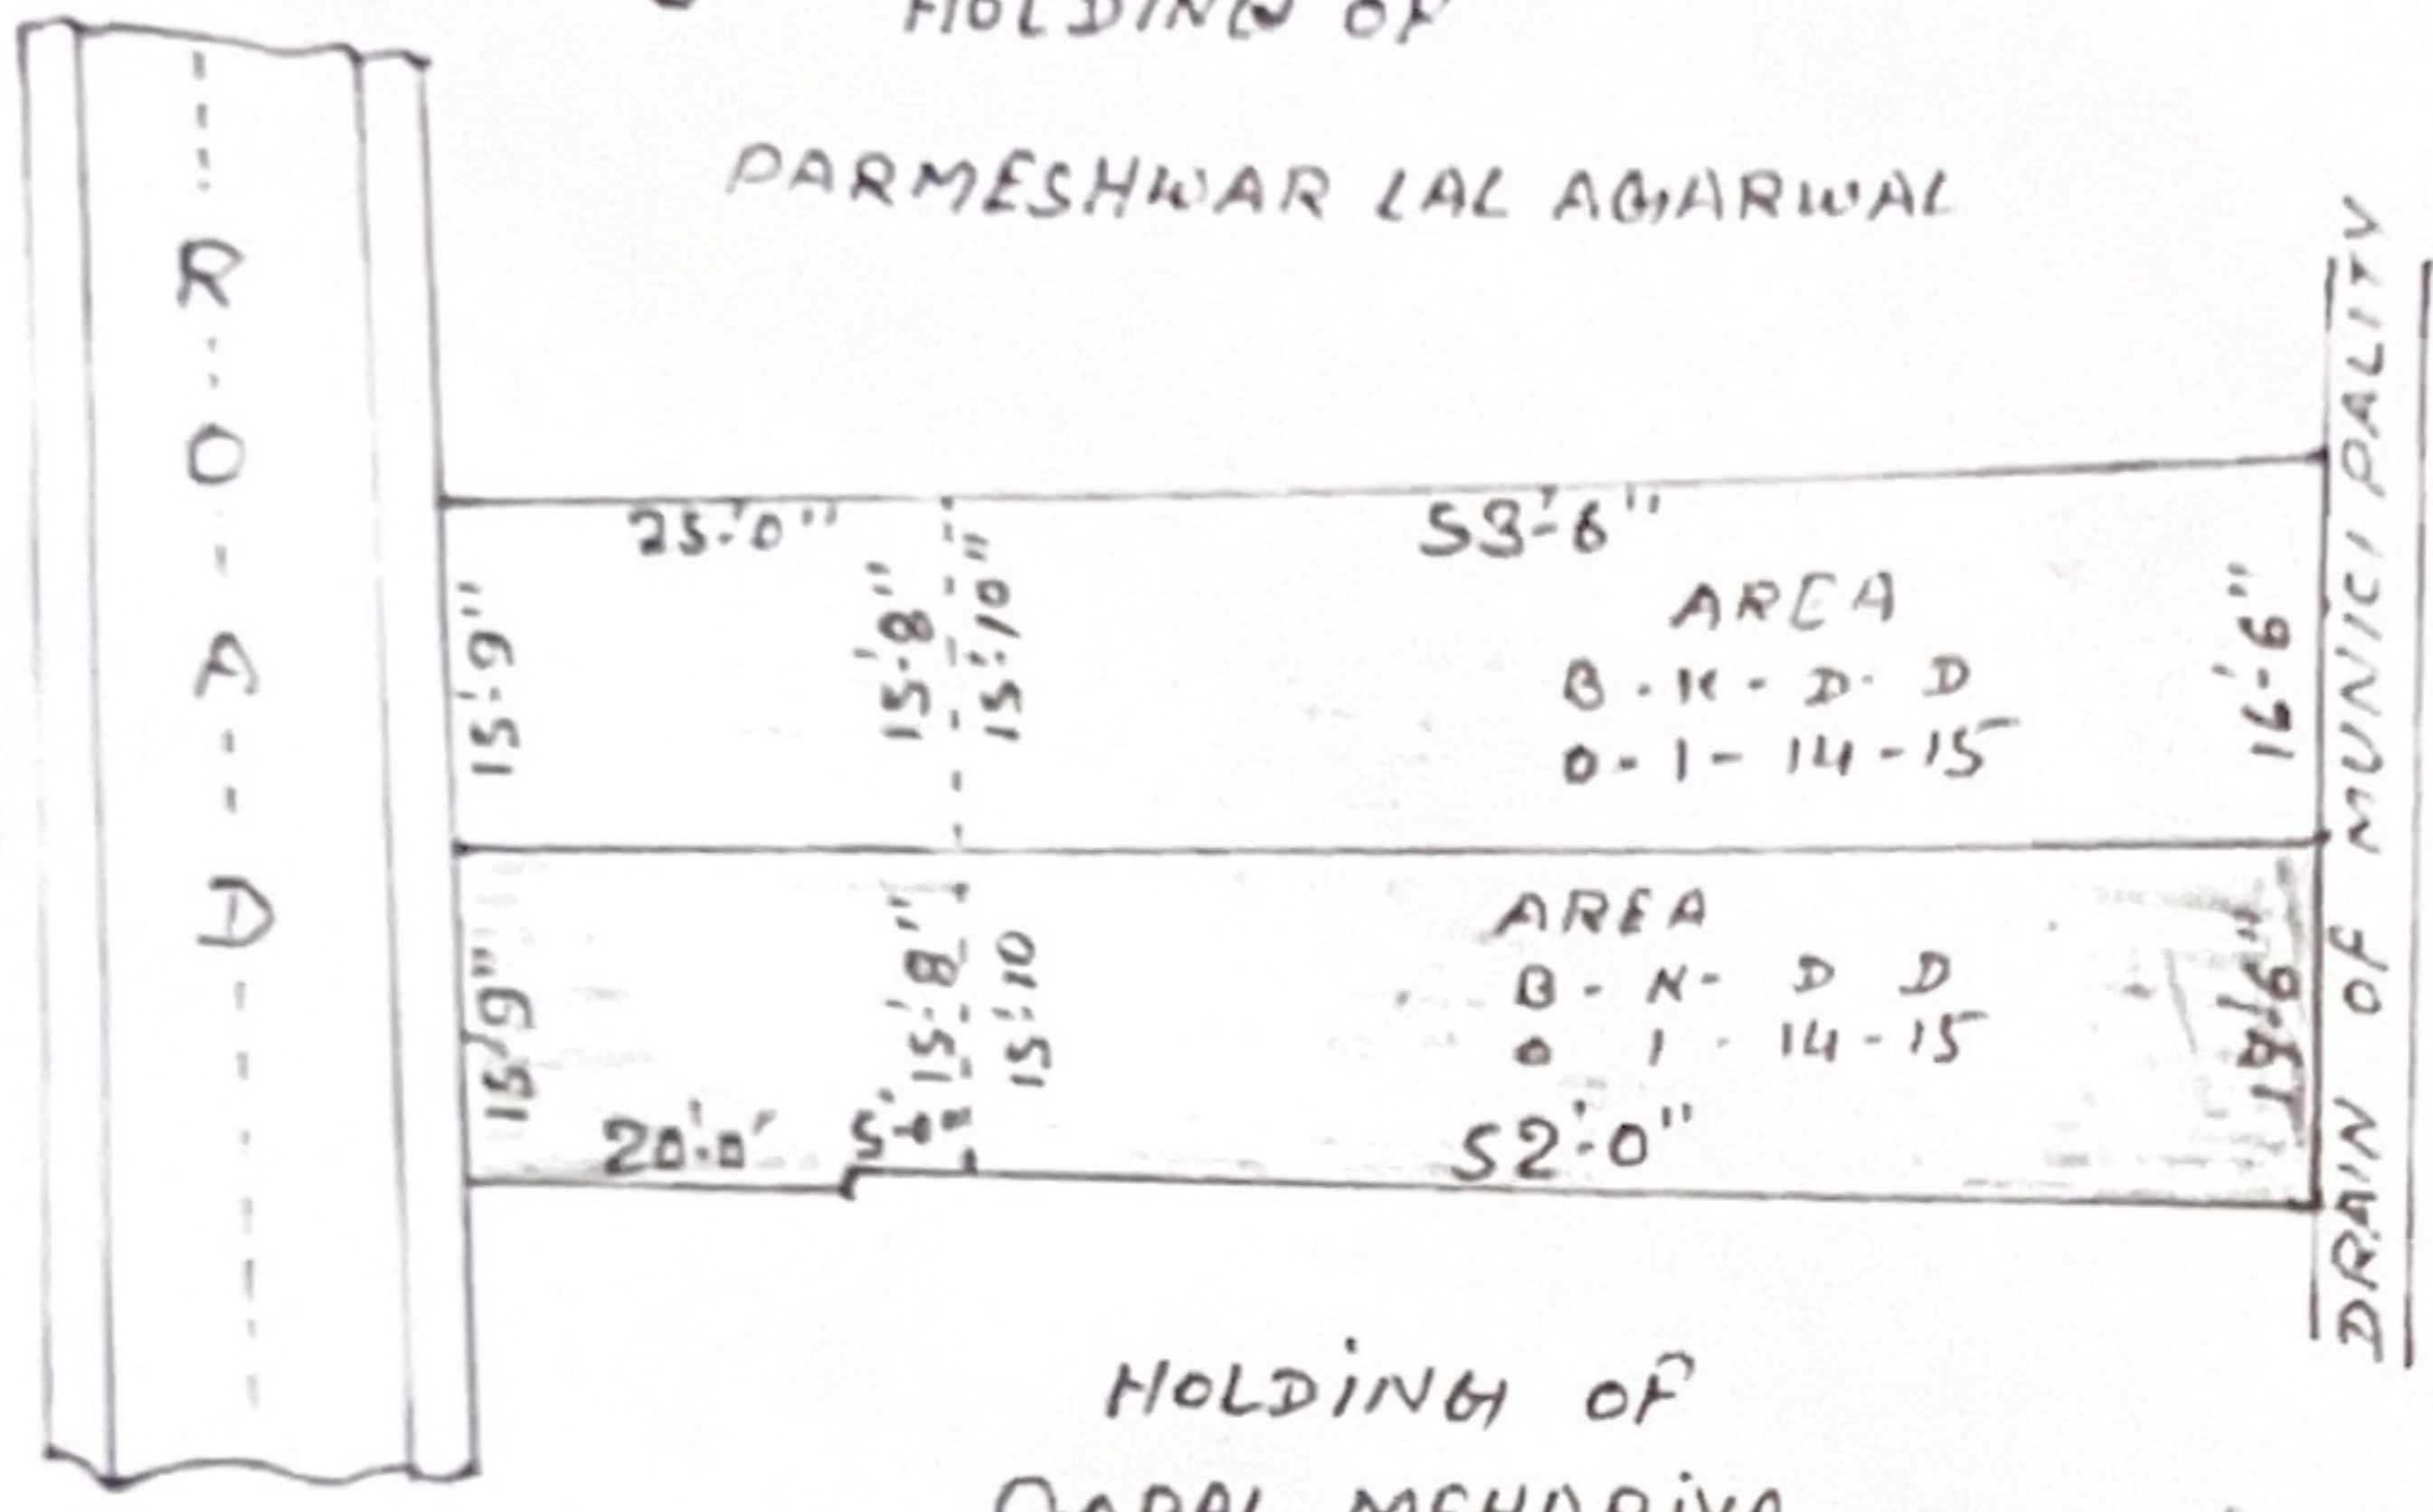 HOLDING OF
PARMESHWAR LAL AGARWAL
R-O-A-D
25'-0"
53'-6"
15'-9"
15'-8"
15'-10"
16'-6"
AREA
B-K-D-D
0-1-14-15
DRAIN OF MUNICIPALITY
15'-9"
15'-8"
15'-10
AREA
B-K-D D
0 1-14-15
20'-0"
52'-0"
HOLDING OF